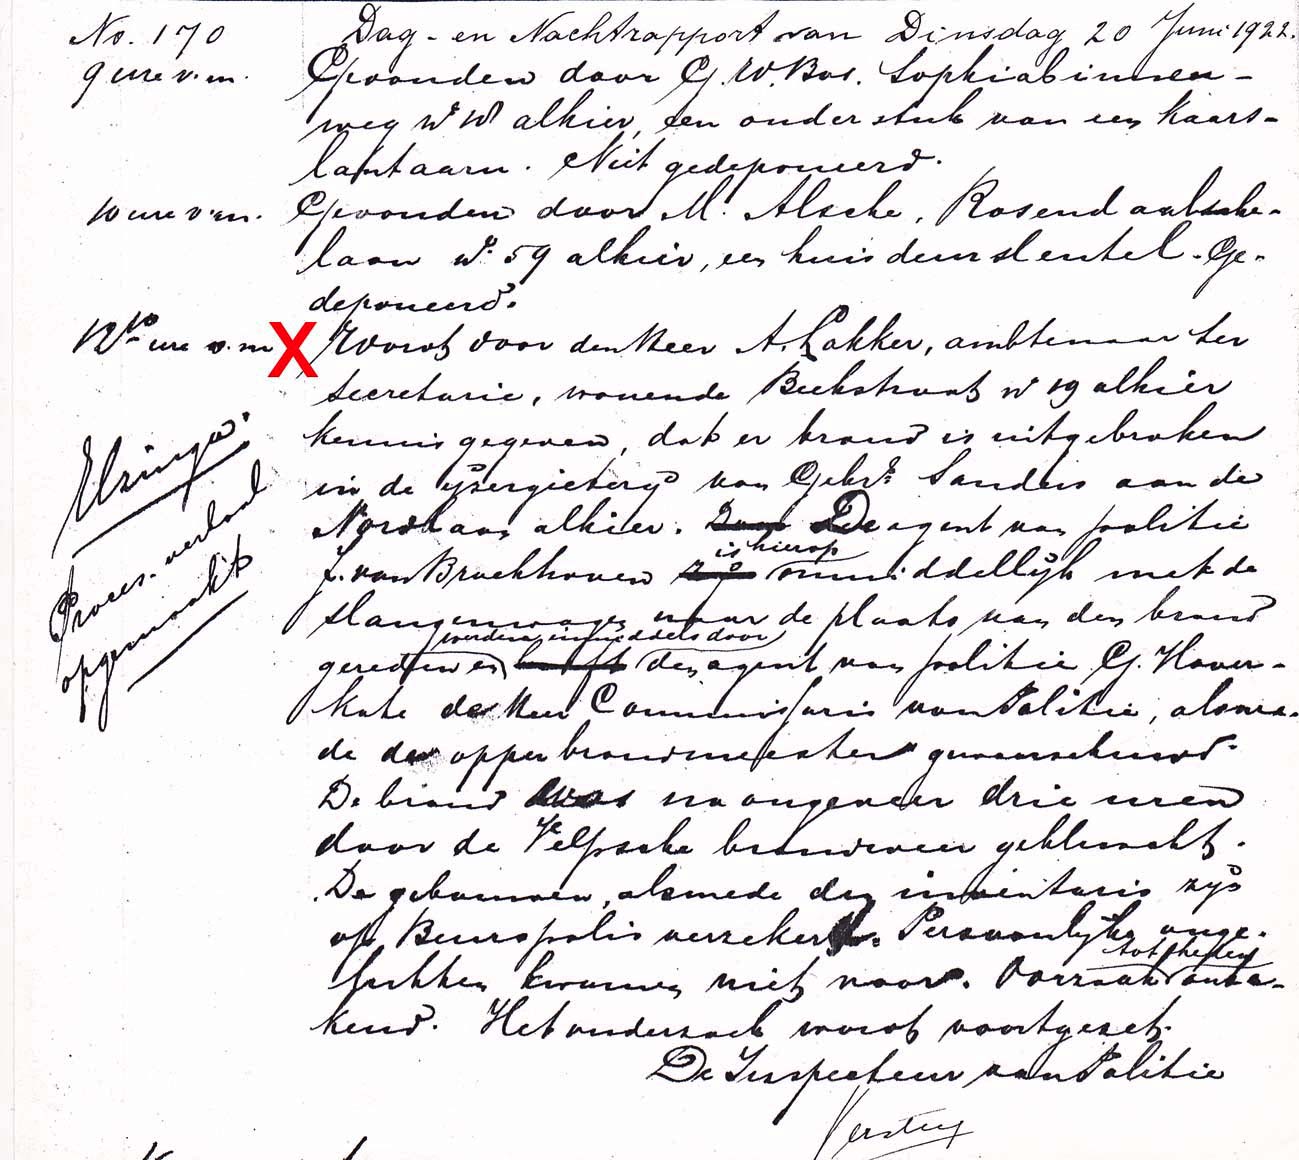 No. 170 Dag- en Nachtrapport van Dinsdag 20 Juni 1922.
9 ure v.m. Gevonden door G. W. Bos. Sophiabinnen-
weg alhier, een onderstuk van een kaars-
lantaarn. Niet gedeponeerd.
10 ure v.m. Gevonden door M. Alsche, Rosendaalsche-
laan No. 59 alhier, een huisdeursleutel. Ge-
deponeerd.
12 10 ure v.m. X Wordt door den Heer A. Lakker, ambtenaar ter
secretarie, wonende Beekstraat No 19 alhier
kennis gegeven, dat er brand is uitgebroken
in de ijzergieterij van Gebrs. Sanders aan de
Nordlaan alhier. De agent van politie
is hierop
J. van Broekhoven onmiddellijk met de
slangenwagen naar de plaats van den brand
werden inmiddels door
gereden en den agent van politie G. Haver-
kate de Heer Commissaris van Politie, alsme-
de de opperbrandmeester gewaarschuwd.
De brand was na ongeveer drie uren
door de Velpsche brandweer gebluscht.
De gebouwen, alsmede den inventaris zijn
op Beurspolis verzekerd. Persoonlijke onge-
tot heden
lukken kwamen niet voor. Oorzaak onbe-
kend. Het onderzoek wordt voortgezet.
De Inspecteur van Politie
Elzinga.
Proces-verbaal
opgemaakt